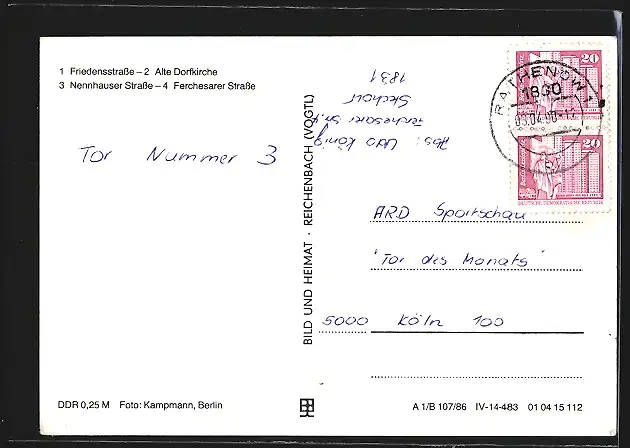 1 Friedensstraße – 2 Alte Dorfkirche
3 Nennhauser Straße – 4 Ferchesarer Straße
Tor Nummer 3
BILD UND HEIMAT · REICHENBACH (VOGTL)
Abs: Udo König
Ferchesarer Str.
Stechow
1831
20
RATHENOW 1
1830
20
DEUTSCHE DEMOKRATISCHE REPUBLIK
ARD Sportschau
"Tor des Monats"
5000 Köln 100
DDR 0,25 M Foto: Kampmann, Berlin
A 1/B 107/86 IV-14-483 01 04 15 112